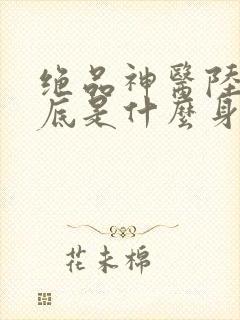 绝品神醫陸
底是什麼身
花未棉